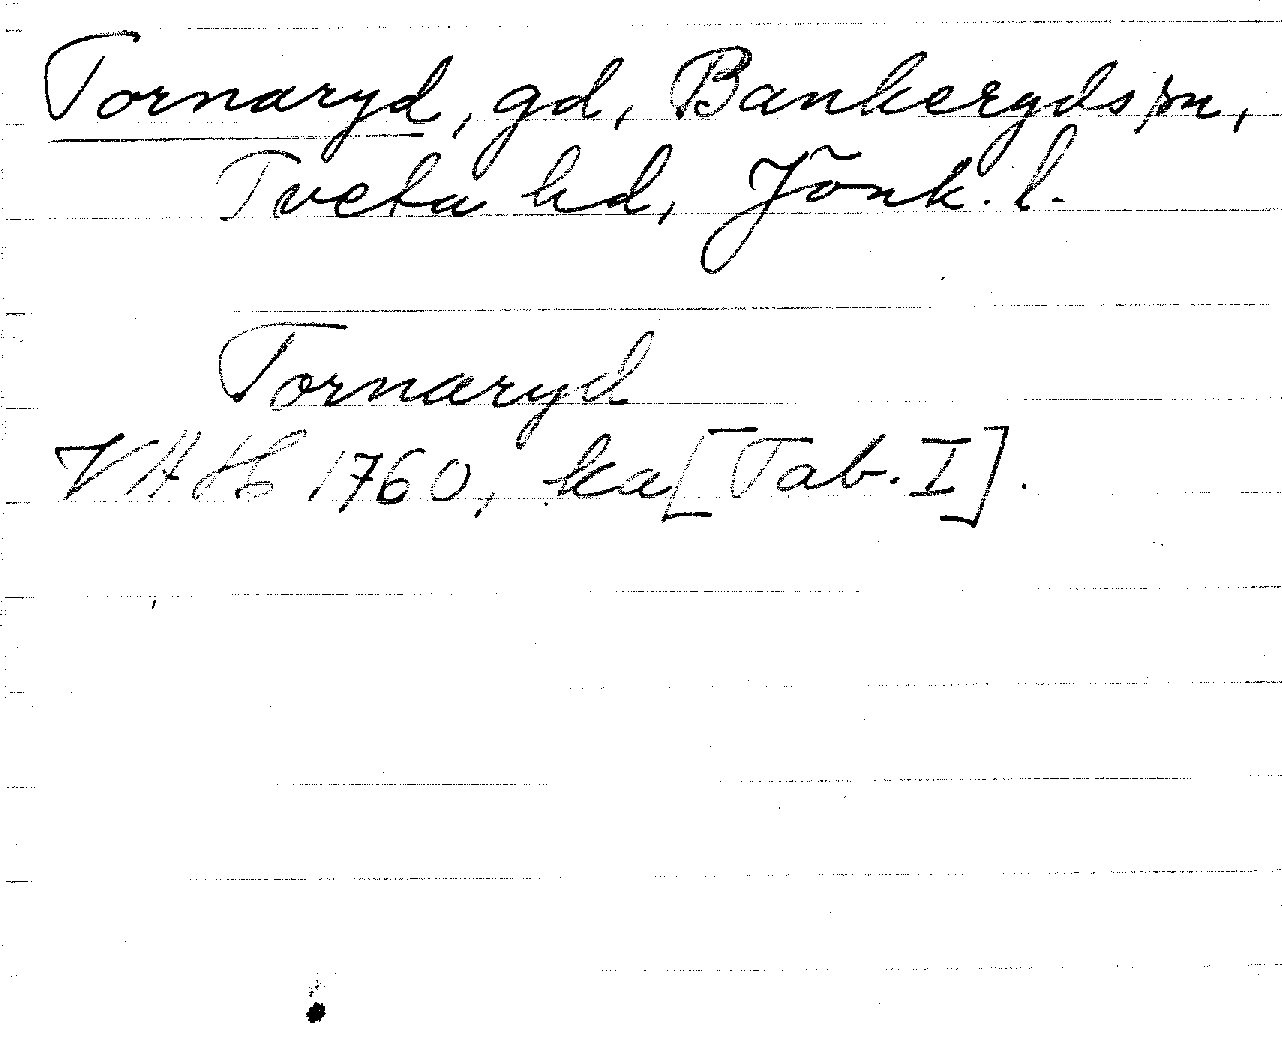 Tornaryd, gd, Bankeryds sn,
Tveta hd, Jönk. l.
Tornaryd
VAH 1760, ka [Tab. I].